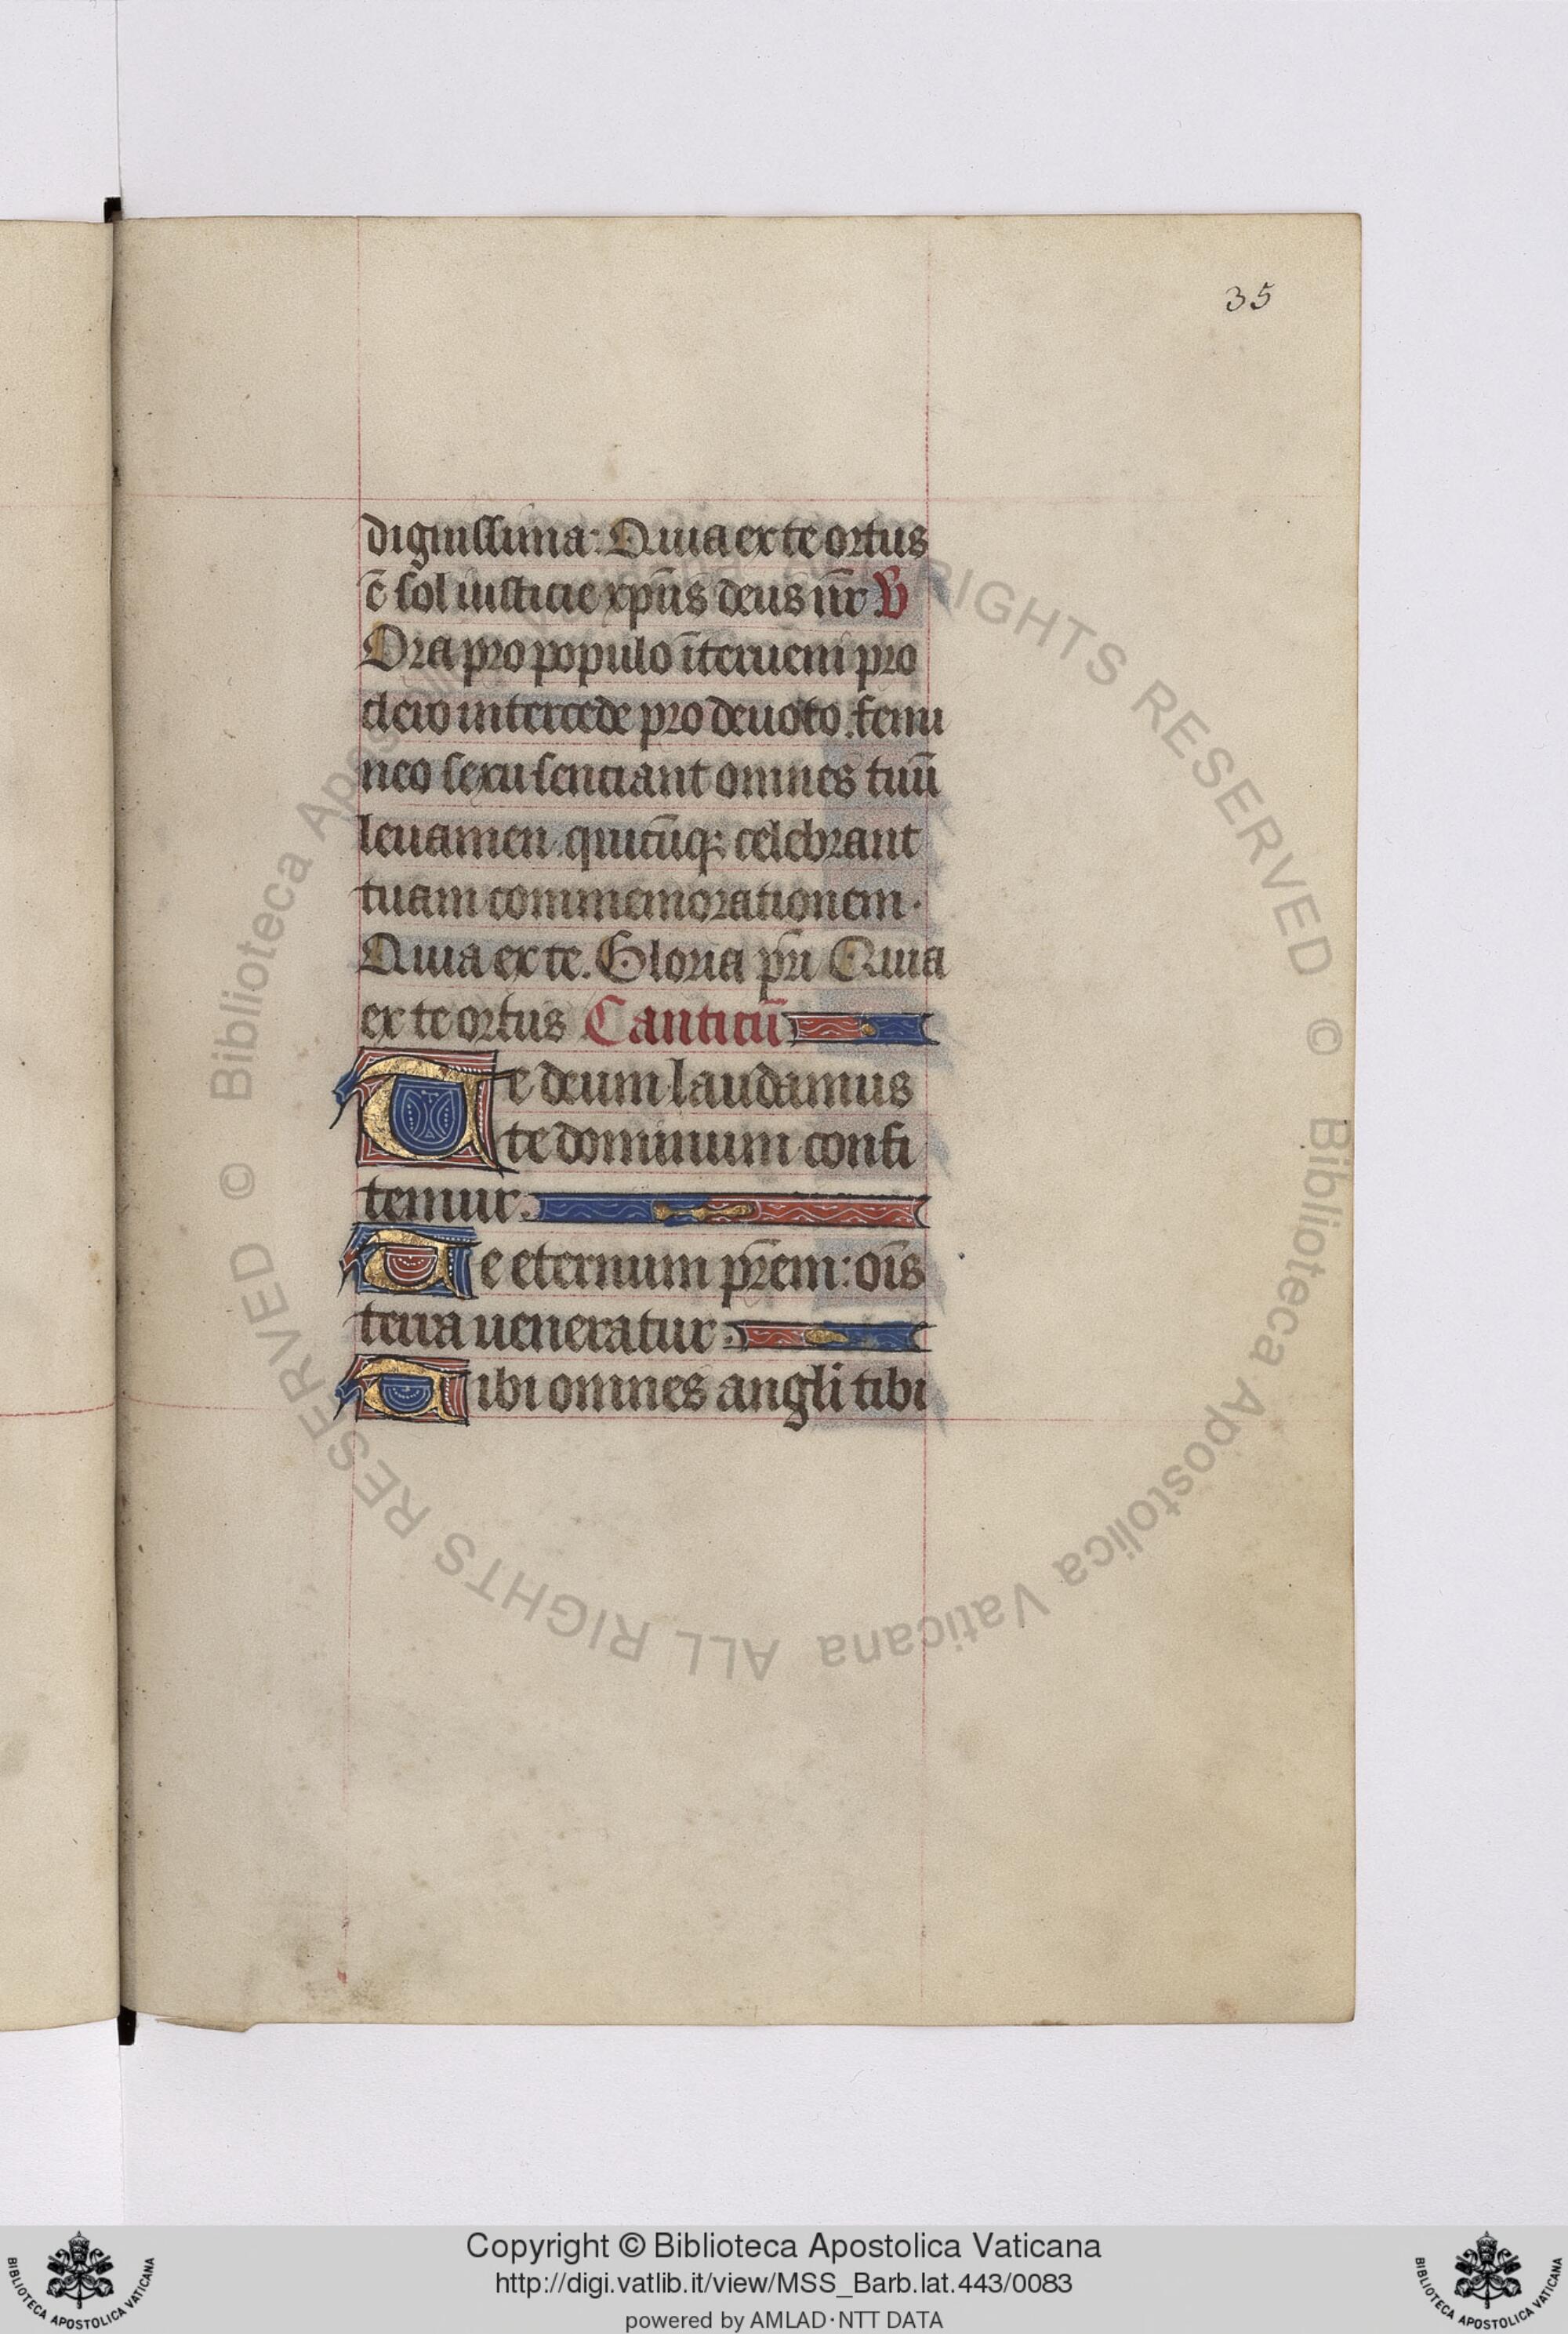 35
dignissima· Quia ex te ortus
ē sol iusticie xp̄us deus nr̄ V
Ora pro populo īterueni pro
clero intercede pro deuoto femi
neo sexu senciant omnes tuū
leuamen quicūq; celebrant
tuam commemorationem·
Quia ex te. Gloria pr̄i Quia
ex te ortus Canticū
Te deum laudamus
te dominum confi
temur.
Te eternum pr̄em: oīs
terra ueneratur.
Tibi omnes angli tibi
Biblioteca Apostolica Vaticana ALL RIGHTS RESERVED © Biblioteca Apostolica Vaticana ALL RIGHTS RESERVED ©
Copyright © Biblioteca Apostolica Vaticana
http://digi.vatlib.it/view/MSS_Barb.lat.443/0083
powered by AMLAD·NTT DATA
BIBLIOTECA APOSTOLICA VATICANA
BIBLIOTECA APOSTOLICA VATICANA